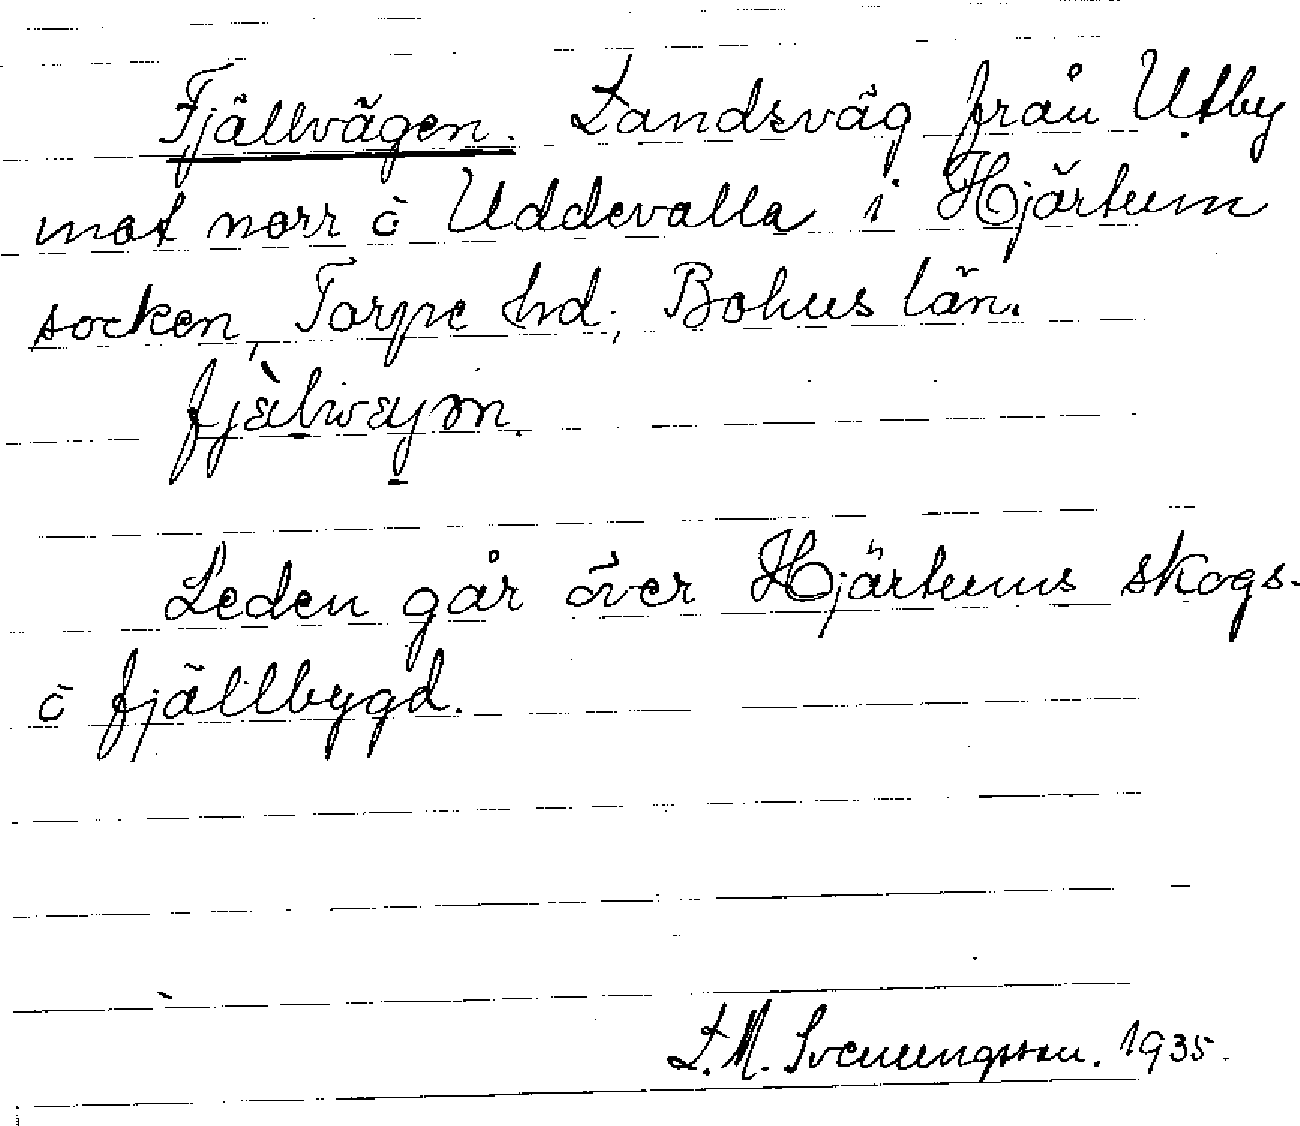 Fjällvägen. Landsväg från Utby
mot norr o Uddevalla i Hjärtum
socken, Torpe hd; Bohus län.
Leden går över Hjärtums skogs-
o fjällbygd.
L.M. Svenungsson. 1935.